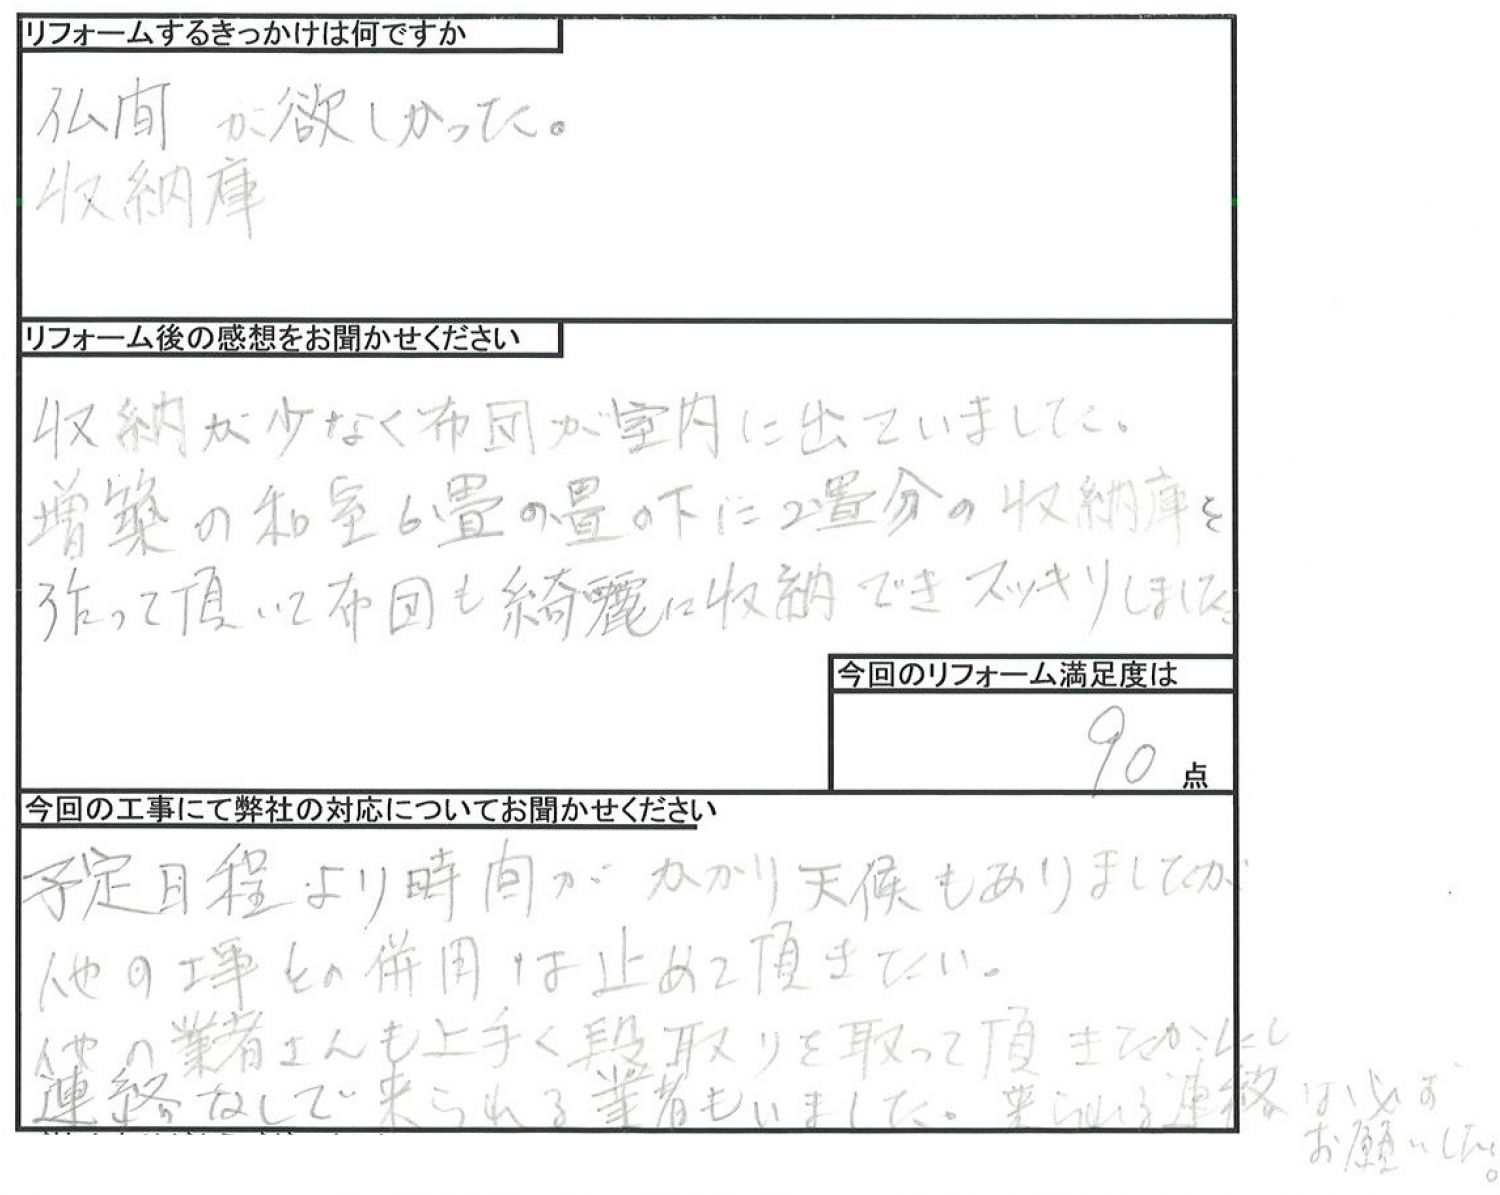 リフォームするきっかけは何ですか
仏間が欲しかった。
収納庫
リフォーム後の感想をお聞かせください
収納が少なく布団が室内に出ていました。
増築の和室6畳の畳の下に2畳分の収納庫を
作って頂いて布団も綺麗に収納できスッキリしました。
今回のリフォーム満足度は
90点
今回の工事にて弊社の対応についてお聞かせください
予定日程より時間がかかり天候もありましたが
他の工事との併用は止めて頂きたい。
他の業者さんも上手く段取りを取って頂きたかったし
連絡なしで来られる業者もいました。来られる連絡は必ず
お願いしたい。